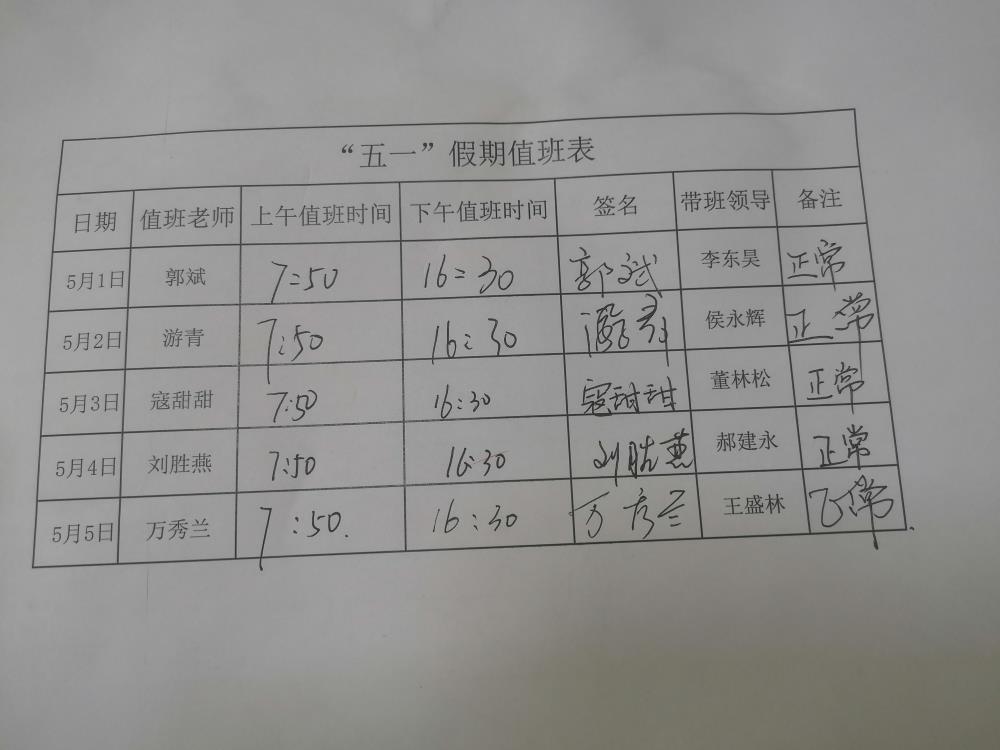 “五一”假期值班表
日期 值班老师 上午值班时间 下午值班时间 签名 带班领导 备注
5月1日 郭斌 7:50 16:30 郭斌 李东昊 正常
5月2日 游青 7:50 16:30 游青 侯永辉 正常
5月3日 寇甜甜 7:50 16:30 寇甜甜 董林松 正常
5月4日 刘胜燕 7:50 16:30 刘胜燕 郝建永 正常
5月5日 万秀兰 7:50. 16:30 万秀兰 王盛林 正常.